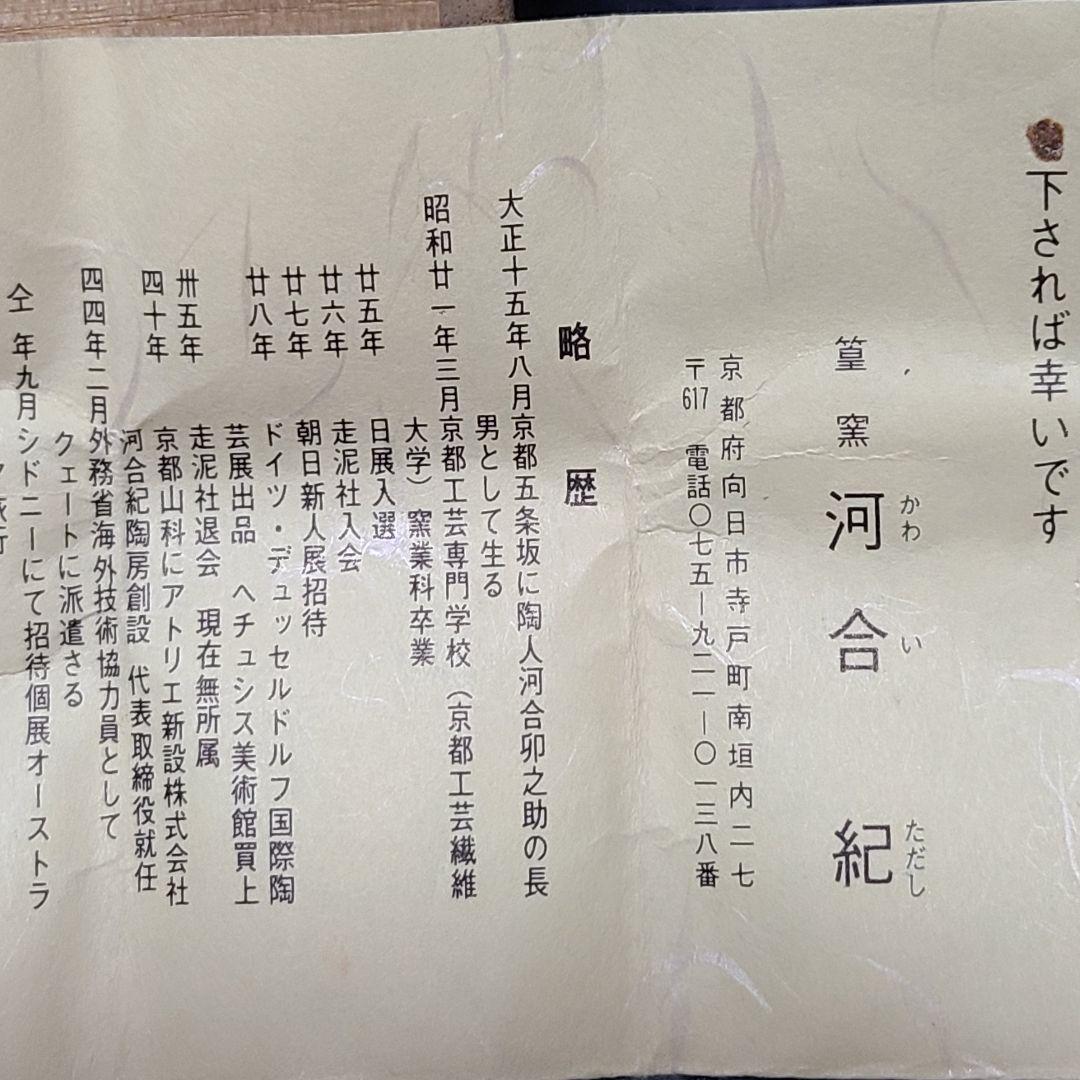 下されば幸いです
篁窯 河合 紀
かわ い ただし
京都府向日市寺戸町南垣内二七
〒617 電話〇七五―九二一―〇一三八番
略歴
大正十五年八月 京都五条坂に陶人河合卯之助の長
男として生る
昭和廿一年三月 京都工芸専門学校(京都工芸繊維
大学)窯業科卒業
廿五年 日展入選
廿六年 走泥社入会
廿七年 朝日新人展招待
廿八年 ドイツ・デュッセルドルフ国際陶
芸展出品 ヘチュシス美術館買上
卅五年 走泥社退会 現在無所属
四十年 京都山科にアトリエ新設株式会社
河合紀陶房創設 代表取締役就任
四四年二月 外務省海外技術協力員として
クェートに派遣さる
仝 年九月 シドニーにて招待個展オーストラ